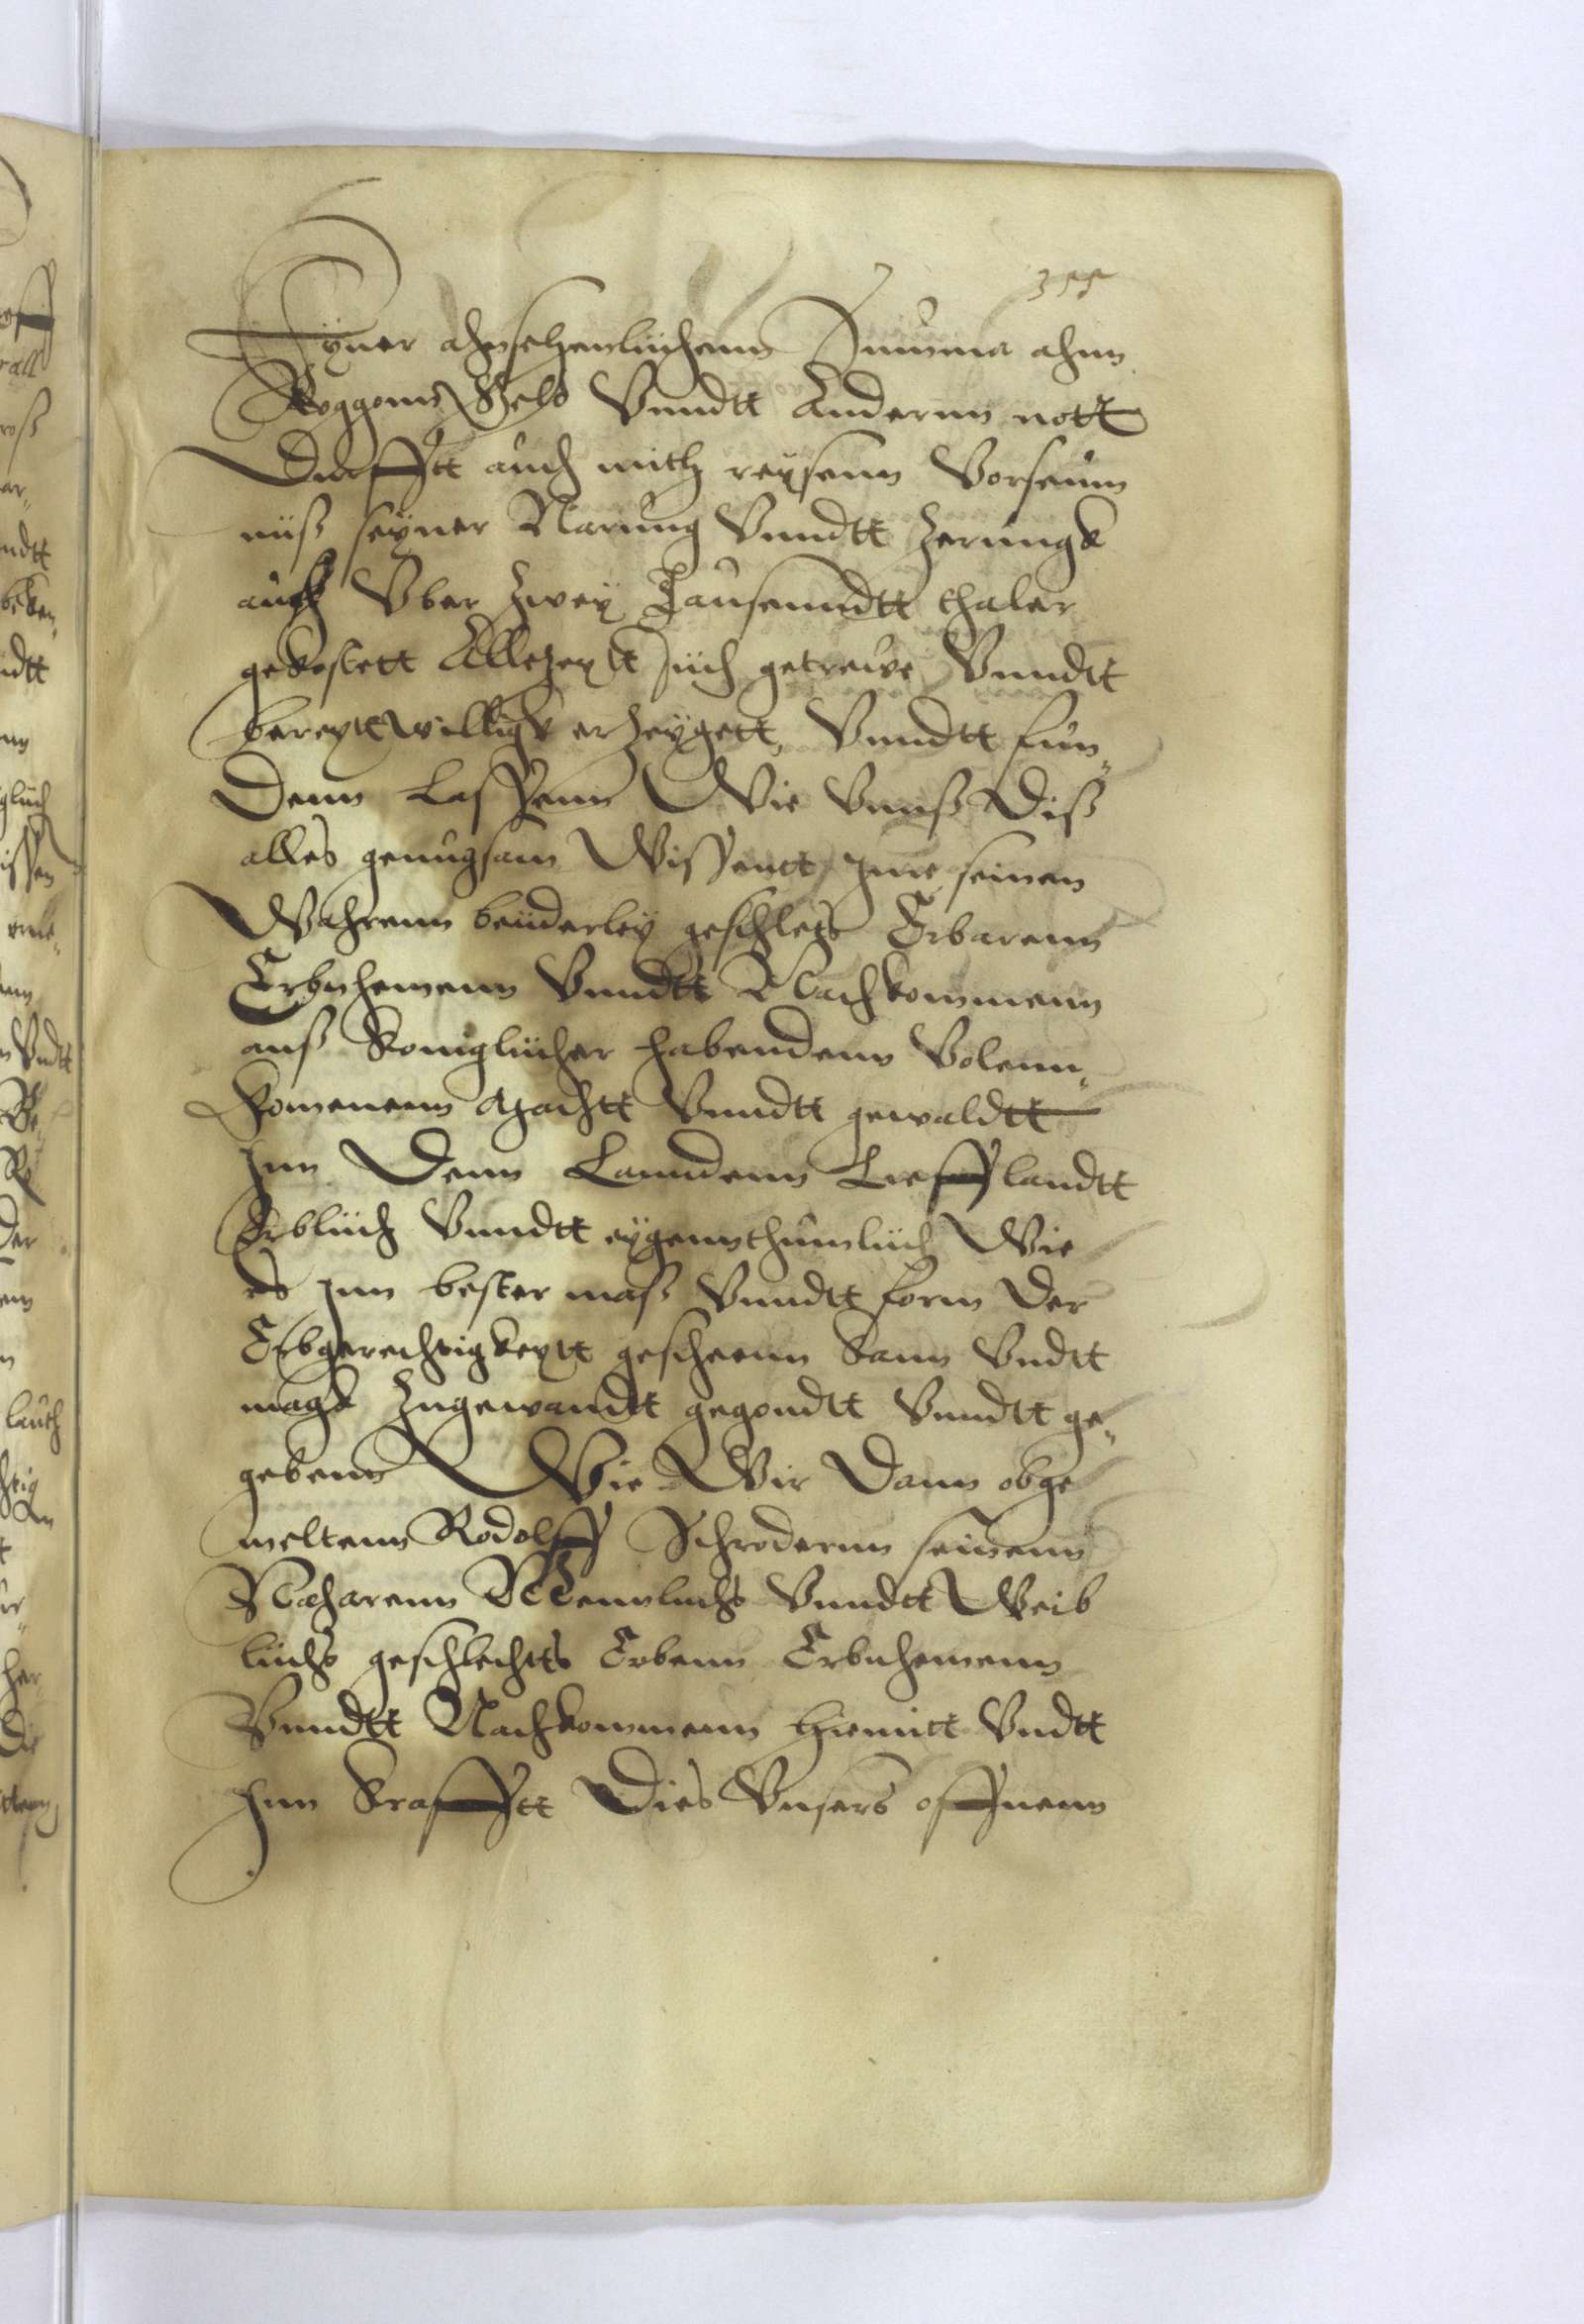 355
Eyner ahnsehenlüchenn Summa ahnn
Roggenn Geld Vnndtt Andernn nott
Durfftt auch mith reysenn Vorseum
nüß seyner Narung Vnndtt Zerungk
auch Vber Zwey Tausenndtt thaler
gekostett Allezeytt süch getreuwe Vnndtt
bereyttwilligk erzeygett, Vnndtt fun„
Denn Lassenn Wie Vnnß Diß
alles genugsam Wissentt Jme seinen
Wahrenn beyderley geschlets Erbarenn
Erbnhemenn Vnndtt Nachkommenn
auß Koniglücher habendenn Volenn„
komenenn Machtt Vnndtt gewaldtt
Jnn Denn Lanndenn Liefflandtt
Erblüch Vnndtt eygennthumlüch Wie
es Jnn bester maß Vnndtt form Der
Erbgerechtigkeytt gescheenn kann Vndtt
magk Zugewandtt gegondtt Vnndtt ge„
gebenn Wie Wir Dann obge
meltenn Rodolff Schrodernn seinenn
Waharenn Mennlichs Vnndtt Weib
lüchs geschlechtts Erbenn Erbnhemenn
Vnndtt Nachkommenn hiemitt Vndtt
Jnn Krafftt Dies Vnsers offnenn